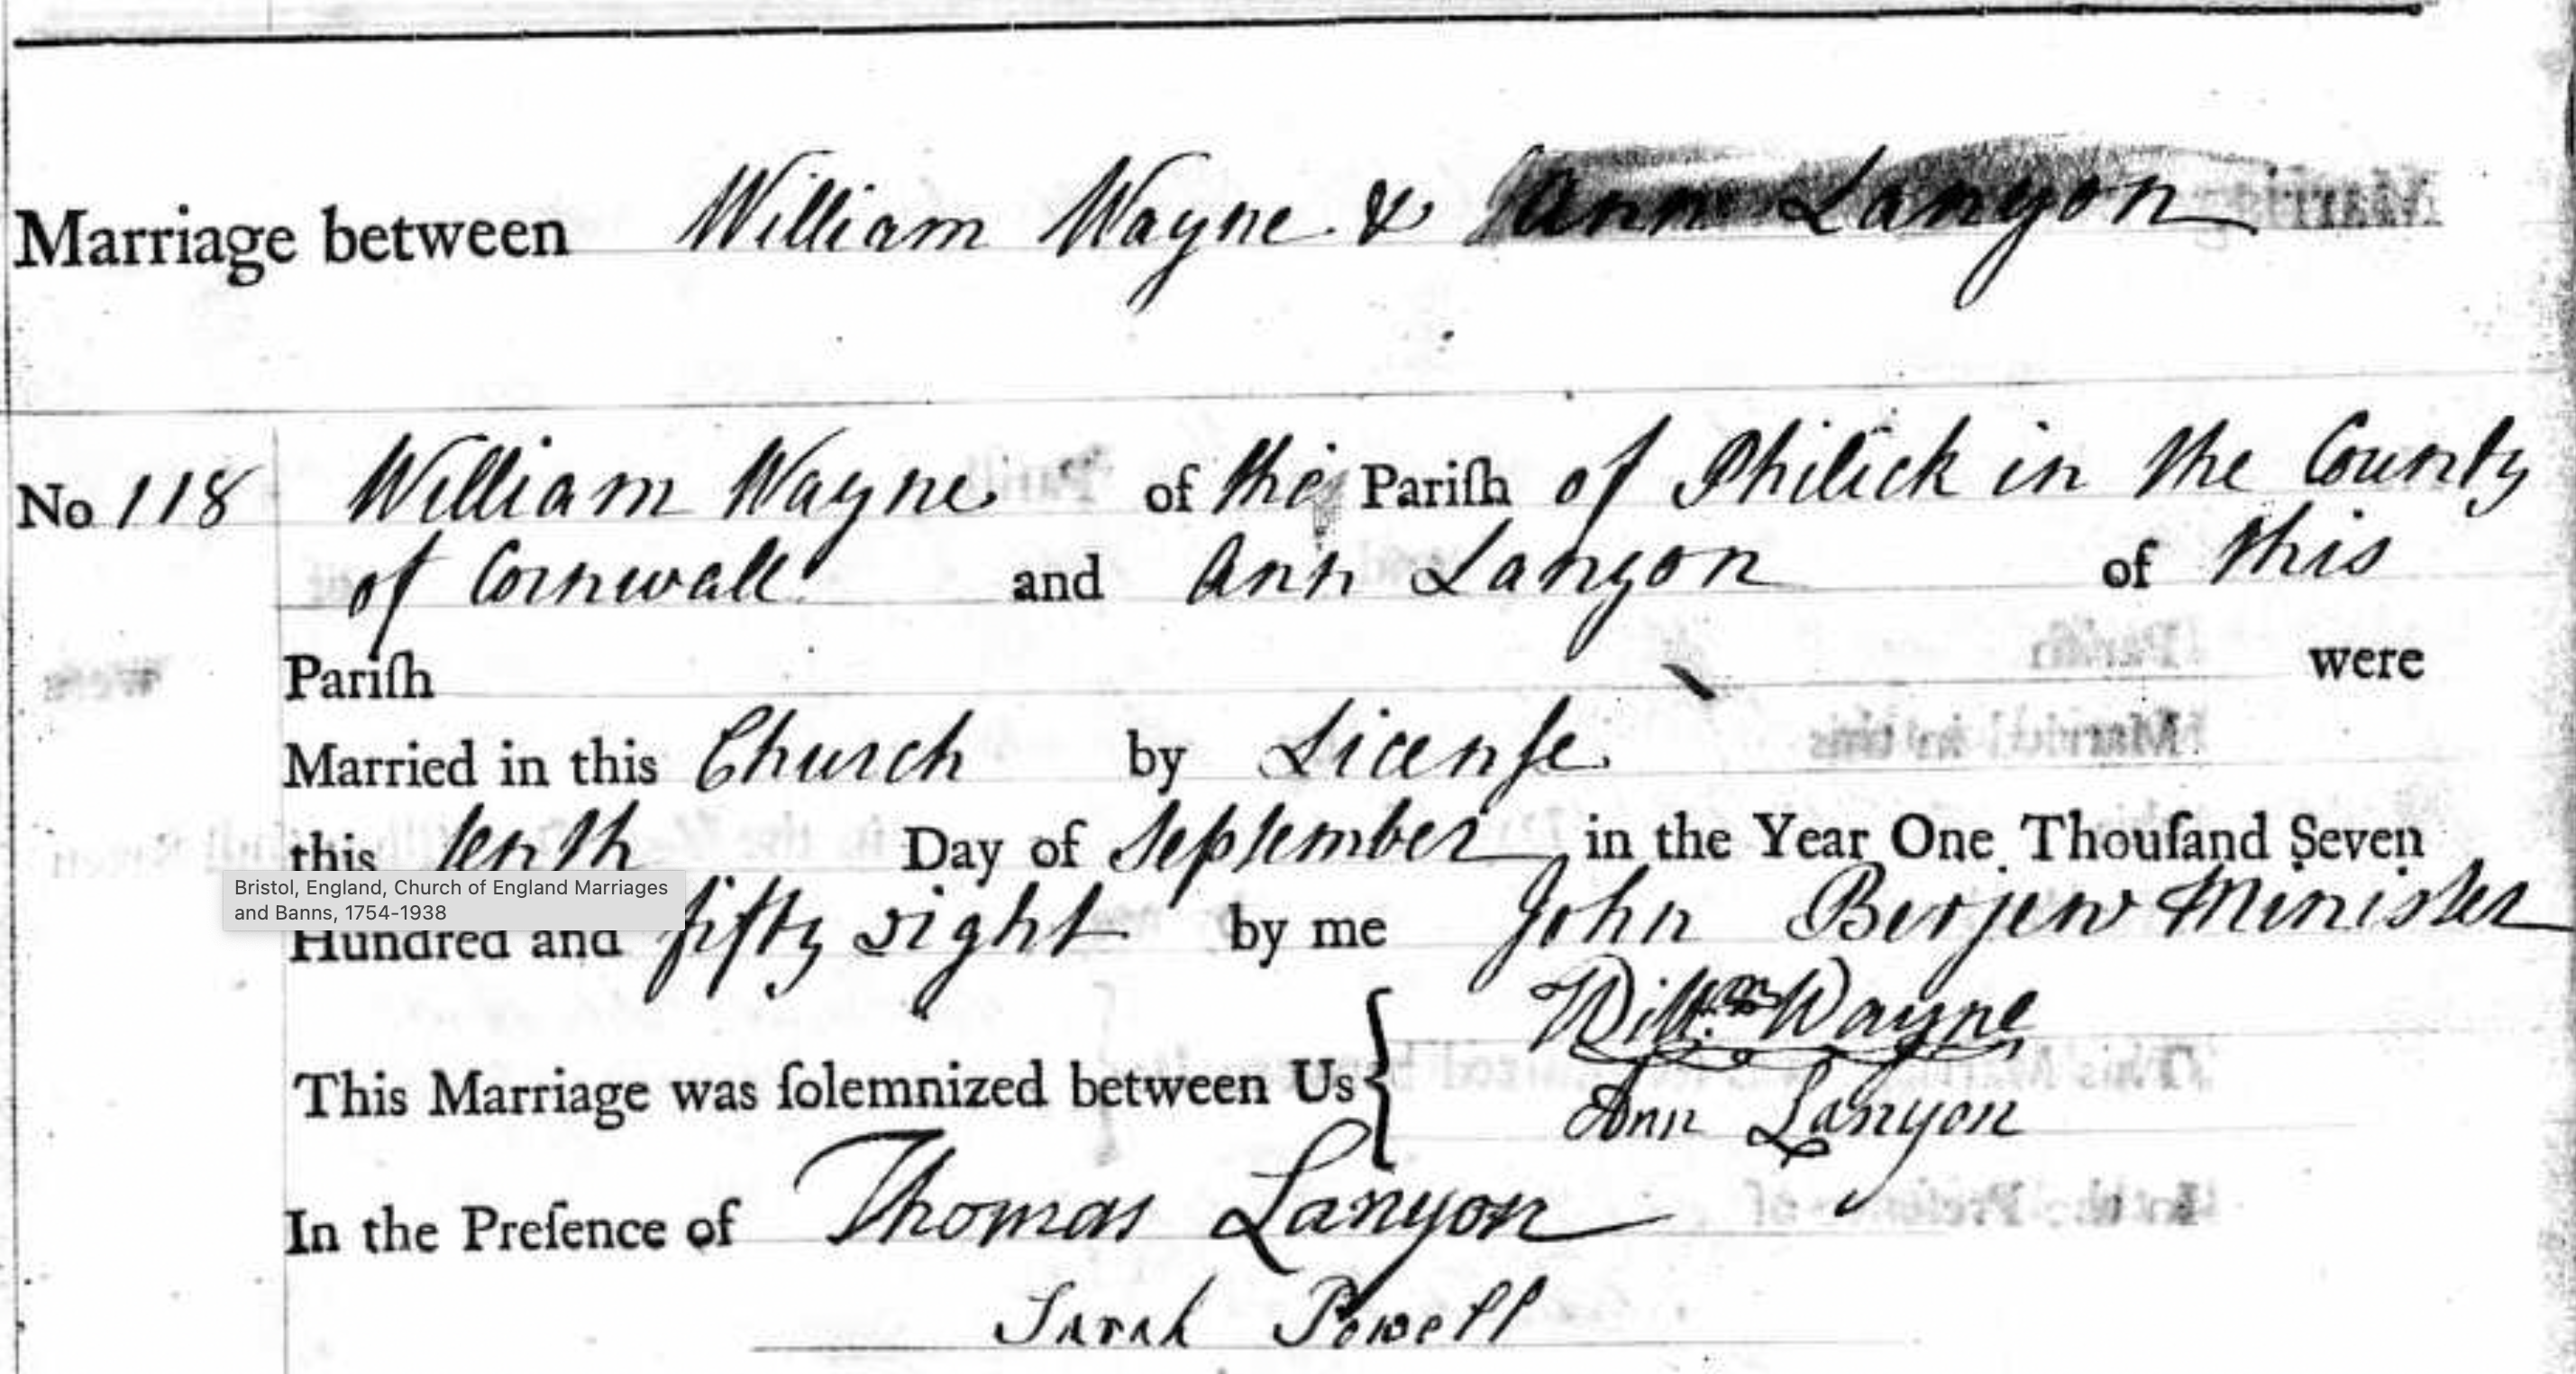 Marriage between William Wayne & Ann Lanyon
No 118 William Wayne of the Pariſh of Philick in the County
of Cornwall and Ann Lanyon of this
Pariſh were
Married in this Church by Licenſe
this tenth Day of September in the Year One Thouſand Seven
Bristol, England, Church of England Marriages
and Banns, 1754-1938
Hundred and fifty eight by me John Berjew Minister
This Marriage was ſolemnized between Us { Willm Wayne
Ann Lanyon
In the Preſence of Thomas Lanyon
Sarah Powell